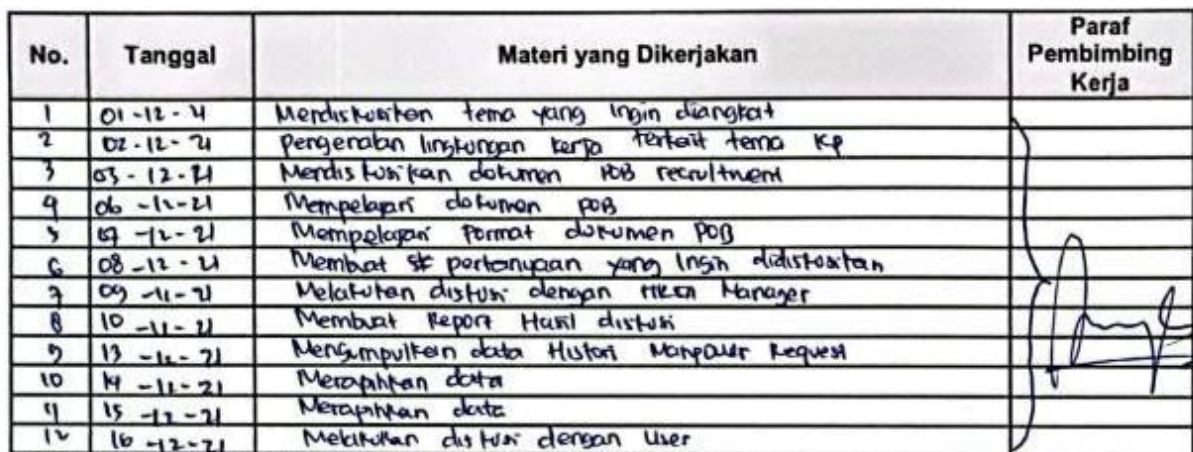 No. Tanggal Materi yang Dikerjakan Paraf Pembimbing Kerja
1 01-12-21 Mendiskusikan tema yang ingin diangkat
2 02-12-21 Pengenalan lingkungan kerja terkait tema KP
3 03-12-21 Mendiskusikan dokumen POB recruitment
4 06-12-21 Mempelajari dokumen POB
5 07-12-21 Mempelajari Format dokumen POB
6 08-12-21 Membuat pertanyaan yang Ingin didiskusikan
7 09-12-21 Melakukan diskusi dengan Manager
8 10-12-21 Membuat Report Hasil diskusi
9 13-12-21 Mengumpulkan data Histori Manpower Request
10 14-12-21 Merapihkan data
11 15-12-21 Merapihkan data
12 16-12-21 Melakukan diskusi dengan User